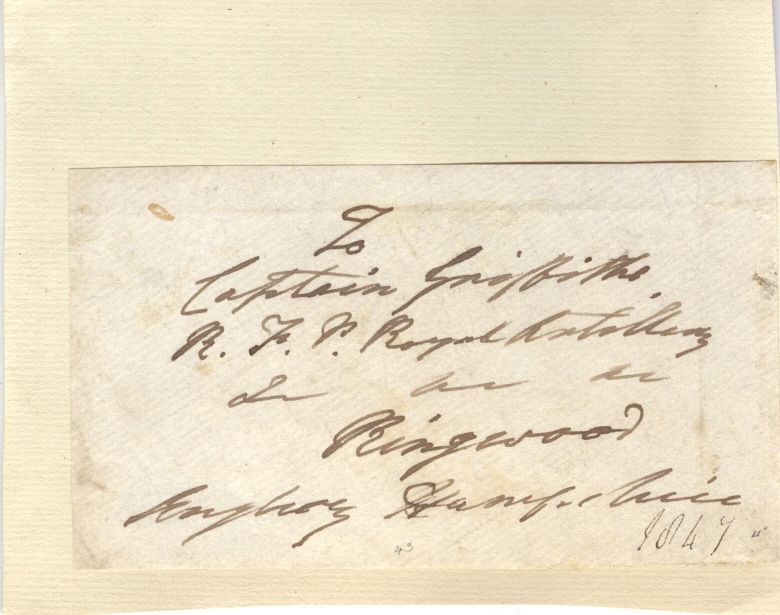 To
Captain Griffiths
R. F. P. Royal Artillery
Ringwood
Hampshire
1847 "
43